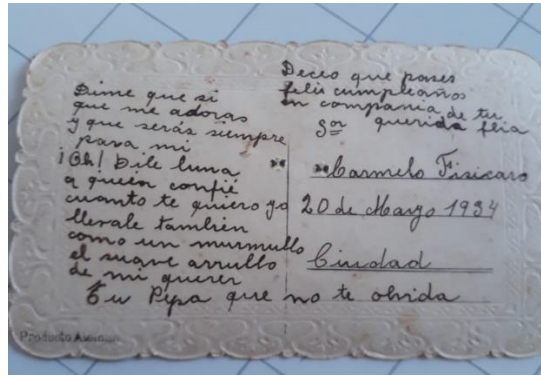 Dime que si
que me adoras
y que serás siempre
para mi
¡Oh! Dile luna
a quién confié
cuanto te quiero yo
llevale también
como un murmullo
el suave arrullo
de mi querer
Tu Pepa que no te olvida
Deceo que pases
felis cumpleaños
en compania de tu
querida flia
Sor
Carmelo Fisicaro
20 de Marzo 1934
Ciudad
Producto Aleman